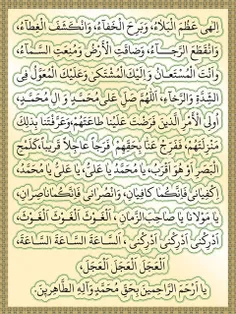 اِلٰهی عَظُمَ الْبَلٰاءُ، وَبَرِحَ الْخَفٰٓاءُ، وَانْكَشَفَ الْغِطٰٓاءُ،
وَانْقَطَعَ الرَّجٰٓاءُ، وَضٰاقَتِ الْاَرْضُ وَمُنِعَتِ السَّمٰٓاءُ،
وَاَنْتَ الْمُسْتَعٰانُ وَاِلَيْكَ الْمُشْتَكىٰ وَعَلَيْكَ الْمُعَوَّلُ فِی
الشِّدَّةِ وَالرَّخٰٓاءِ، اَللّٰهُمَّ صَلِّ عَلىٰ مُحَمَّدٍ وَ اٰلِ مُحَمَّدٍ،
اُولِی الْاَمْرِ الَّذينَ فَرَضْتَ عَلَيْنٰا طٰاعَتَهُمْ، وَعَرَّفْتَنٰا بِذٰلِكَ
مَنْزِلَتَهُمْ، فَفَرِّجْ عَنّٰا بِحَقِّهِمْ فَرَجًا عٰاجِلًا قَريبًا، كَلَمْحِ
الْبَصَرِ اَوْ هُوَ اَقْرَبُ، يٰا مُحَمَّدُ يٰا عَلِیُّ، يٰا عَلِیُّ يٰا مُحَمَّدُ،
اِكْفِيٰانی فَاِنَّكُمٰا كٰافِيٰانِ، وَانْصُرٰانی فَاِنَّكُمٰا نٰاصِرٰانِ،
يٰا مَوْلٰانٰا يٰا صٰاحِبَ الزَّمٰانِ، اَلْغَوْثَ الْغَوْثَ الْغَوْثَ،
اَدْرِكْنی اَدْرِكْنی اَدْرِكْنی، اَلسّٰاعَةَ السّٰاعَةَ السّٰاعَةَ،
اَلْعَجَلَ الْعَجَلَ الْعَجَلَ،
يٰا اَرْحَمَ الرّٰاحِمينَ بِحَقِّ مُحَمَّدٍ وَاٰلِهِ الطّٰاهِرينَ